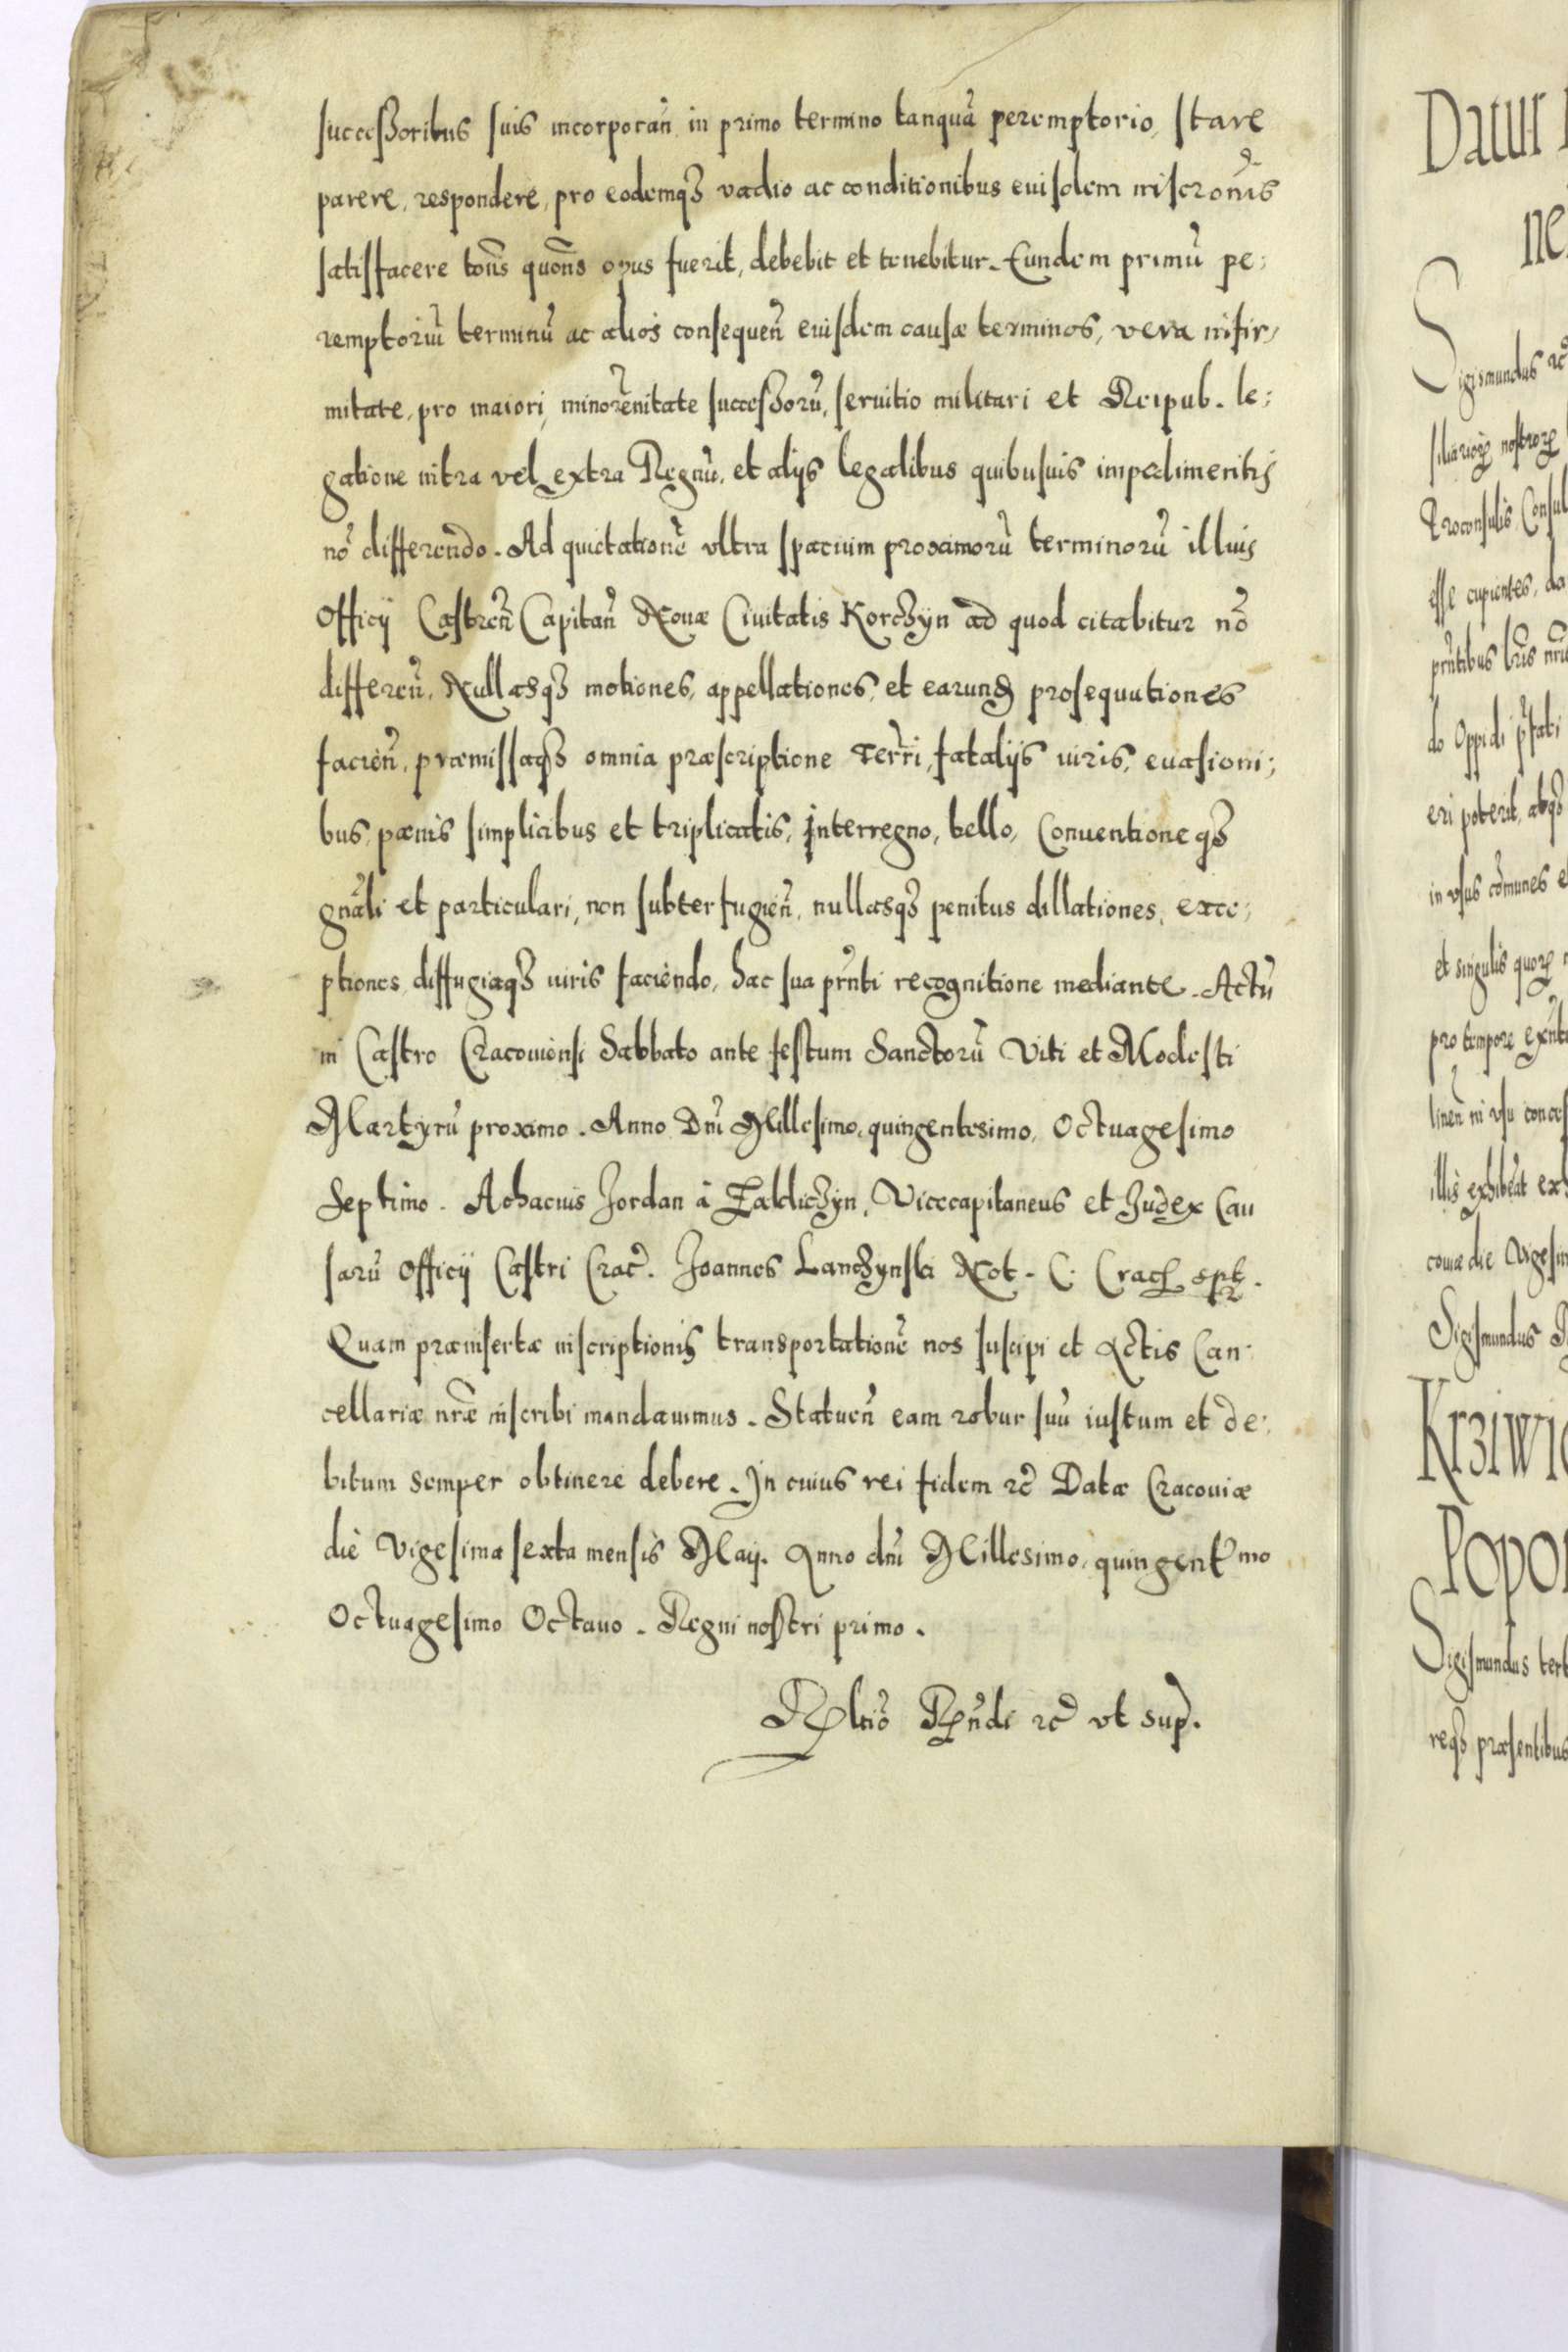 succeßoribus suis incorporan̄ in primo termino tanquā peremptorio, stare
parere, respondere, pro eodemqȝ vadio ac conditionibus euisdem inscrōnis
satisfacere tōns quōns opus fuerit, debebit et tenebitur. Eundem primū pe;
remptoriū terminū ac alios consequen̄ euisdem causæ terminos, vera infir,
mitate, pro maiori, minorēnitate succeßorū, seruitio militari et Reipub. le;
gatione intra vel extra Regnū, et alijs legalibus quibusuis impedimentis
nō differendo. Ad quietationē vltra spacium proximorū terminorū illius
Officÿ Castren̄ Capitan̄ Nouæ Ciuitatis Korchÿn ad quod citabitur nō
differen̄, Nullasqȝ motiones, appellationes, et earund prosequutiones
facien̄, præmissaqȝ omnia præscriptione Terri, fatalijs iuris, euasioni;
bus, pænis simplicibus et triplicatis, interregno, bello, Conuentione qȝ
gnāli et particulari, non subterfugien̄, nullasqȝ penitus dillationes, exce;
ptiones, diffugiaqȝ iuris faciendo, hac sua prn̄ti recognitione mediante. Actū
in Castro Cracouiensi Sabbato ante festum Sanctorū Viti et Modesti
Martyrū proximo. Anno Dnī Millesimo, quingentesimo, Octuagesimo
Septimo. Achacius Jordan à Zaklichÿn, Vicecapitaneus et Judex Cau
sarū Officÿ Castri Crac̄. Joannes Lanchÿnski Not. C. Crac spt.
Quam præinsertæ inscriptionis transportationē nos suscipi et Actis Can;
cellariæ nrǣ inscribi mandauimus. Statuen̄ eam robur suū iustum et de;
bitum semper obtinere debere. In cuius rei fidem ꝛc̄ Datæ Cracouiæ
die Vigesima sexta mensis Maij. Anno dnī Millesimo, quingentmo
Octuagesimo Octauo. Regni nostri primo.
Rltiō Rn̄di ꝛc vt sup.
Datur
ne
Sigismundus ꝛc
nostrorȝ
Proconsulis Consul
esse cupientes, da
prn̄tibus lrīs nrī
do Oppidi
eri poterit, atqȝ
in vsus cōmunes e
et singulis quorȝ
pro tempore exn̄t
linen̄ in vsu conces
illis exhibeat ex
couiæ die Vigesim
Sigismundus
Krziwic
Popo
Sigismundus tert
reqȝ præsentibus